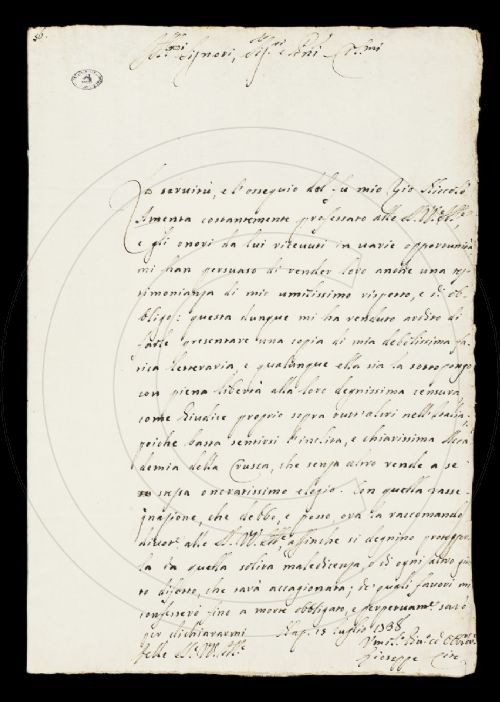 50.
Ill.mi Signori, Sig.ri e P̃roni Col.mi
La servitù, e l'ossequio del fu mio Zio Niccolò
Amenta costantemente professato alle SS. VV. Ill.me,
e gli onori da lui ricevuti in varie opportunità
mi han persuaso di render loro anche una tes-
timonianza di mio umilissimo rispetto, e di ob-
bligo: questa dunque mi ha renduto ardito di
farle presentare una copia di mia debilissima fa-
tica letteraria, e qualunque ella sia la sottopongo
con piena libertà alla loro degnissima censura
come Giudice proprio sopra tutt'altri nell'Italia,
poiche basta sentirsi l'inclita, e chiarissima Acca-
demia della Crusca, che senza altro rende a se
stessa onoratissimo elogio. Con quella rasse-
gnazione, che debbo, e posso ora la raccomando
alle SS. VV. Ill.me, affinche si degnino protegger-
la da quella solita maledicenza, o di ogni altro
difetto, che sarà accagionata; de' quali favori mi
confesserò fino a morte obbligato, e perpetuam.te sarò
per dichiararmi Nap. 15 luglio 1738
Delle SS. VV. Ill.me
Giuseppe